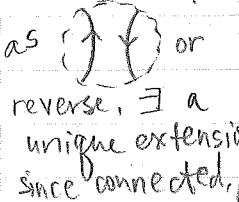 as or
reverse, ∃ a
unique extensi
since connected,